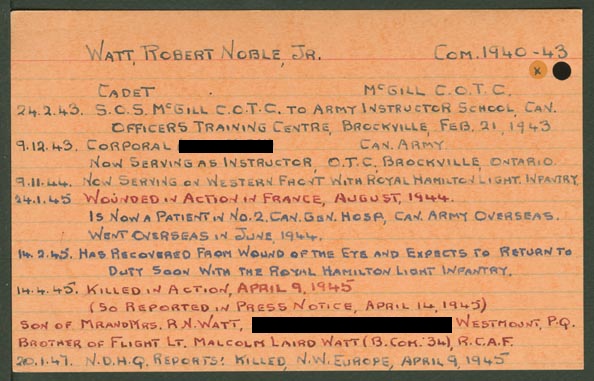 WATT, ROBERT NOBLE, JR. COM. 1940-43
x
CADET McGILL C.O.T.C.
24.2.43. S.C.S. McGILL C.O.T.C. TO ARMY INSTRUCTOR SCHOOL, CAN.
OFFICERS TRAINING CENTRE, BROCKVILLE, FEB. 21, 1943
9.12.43. CORPORAL CAN. ARMY
NOW SERVING AS INSTRUCTOR, O.T.C., BROCKVILLE, ONTARIO.
9.11.44. NOW SERVING ON WESTERN FRONT WITH ROYAL HAMILTON LIGHT INFANTRY
24.1.45 WOUNDED IN ACTION IN FRANCE, AUGUST, 1944.
IS NOW A PATIENT IN NO. 2. CAN. GEN. HOSP., CAN. ARMY OVERSEAS.
WENT OVERSEAS IN JUNE, 1944.
14.2.45. HAS RECOVERED FROM WOUND OF THE EYE AND EXPECTS TO RETURN TO
DUTY SOON WITH THE ROYAL HAMILTON LIGHT INFANTRY.
14.4.45. KILLED IN ACTION, APRIL 9, 1945
(SO REPORTED IN PRESS NOTICE, APRIL 14, 1945)
SON OF MR AND MRS. R.N. WATT, WESTMOUNT, P.Q.
BROTHER OF FLIGHT LT. MALCOLM LAIRD WATT (B.COM. '34), R.C.A.F.
20.1.47. N.D.H.Q. REPORTS: KILLED, N.W. EUROPE, APRIL 9, 1945